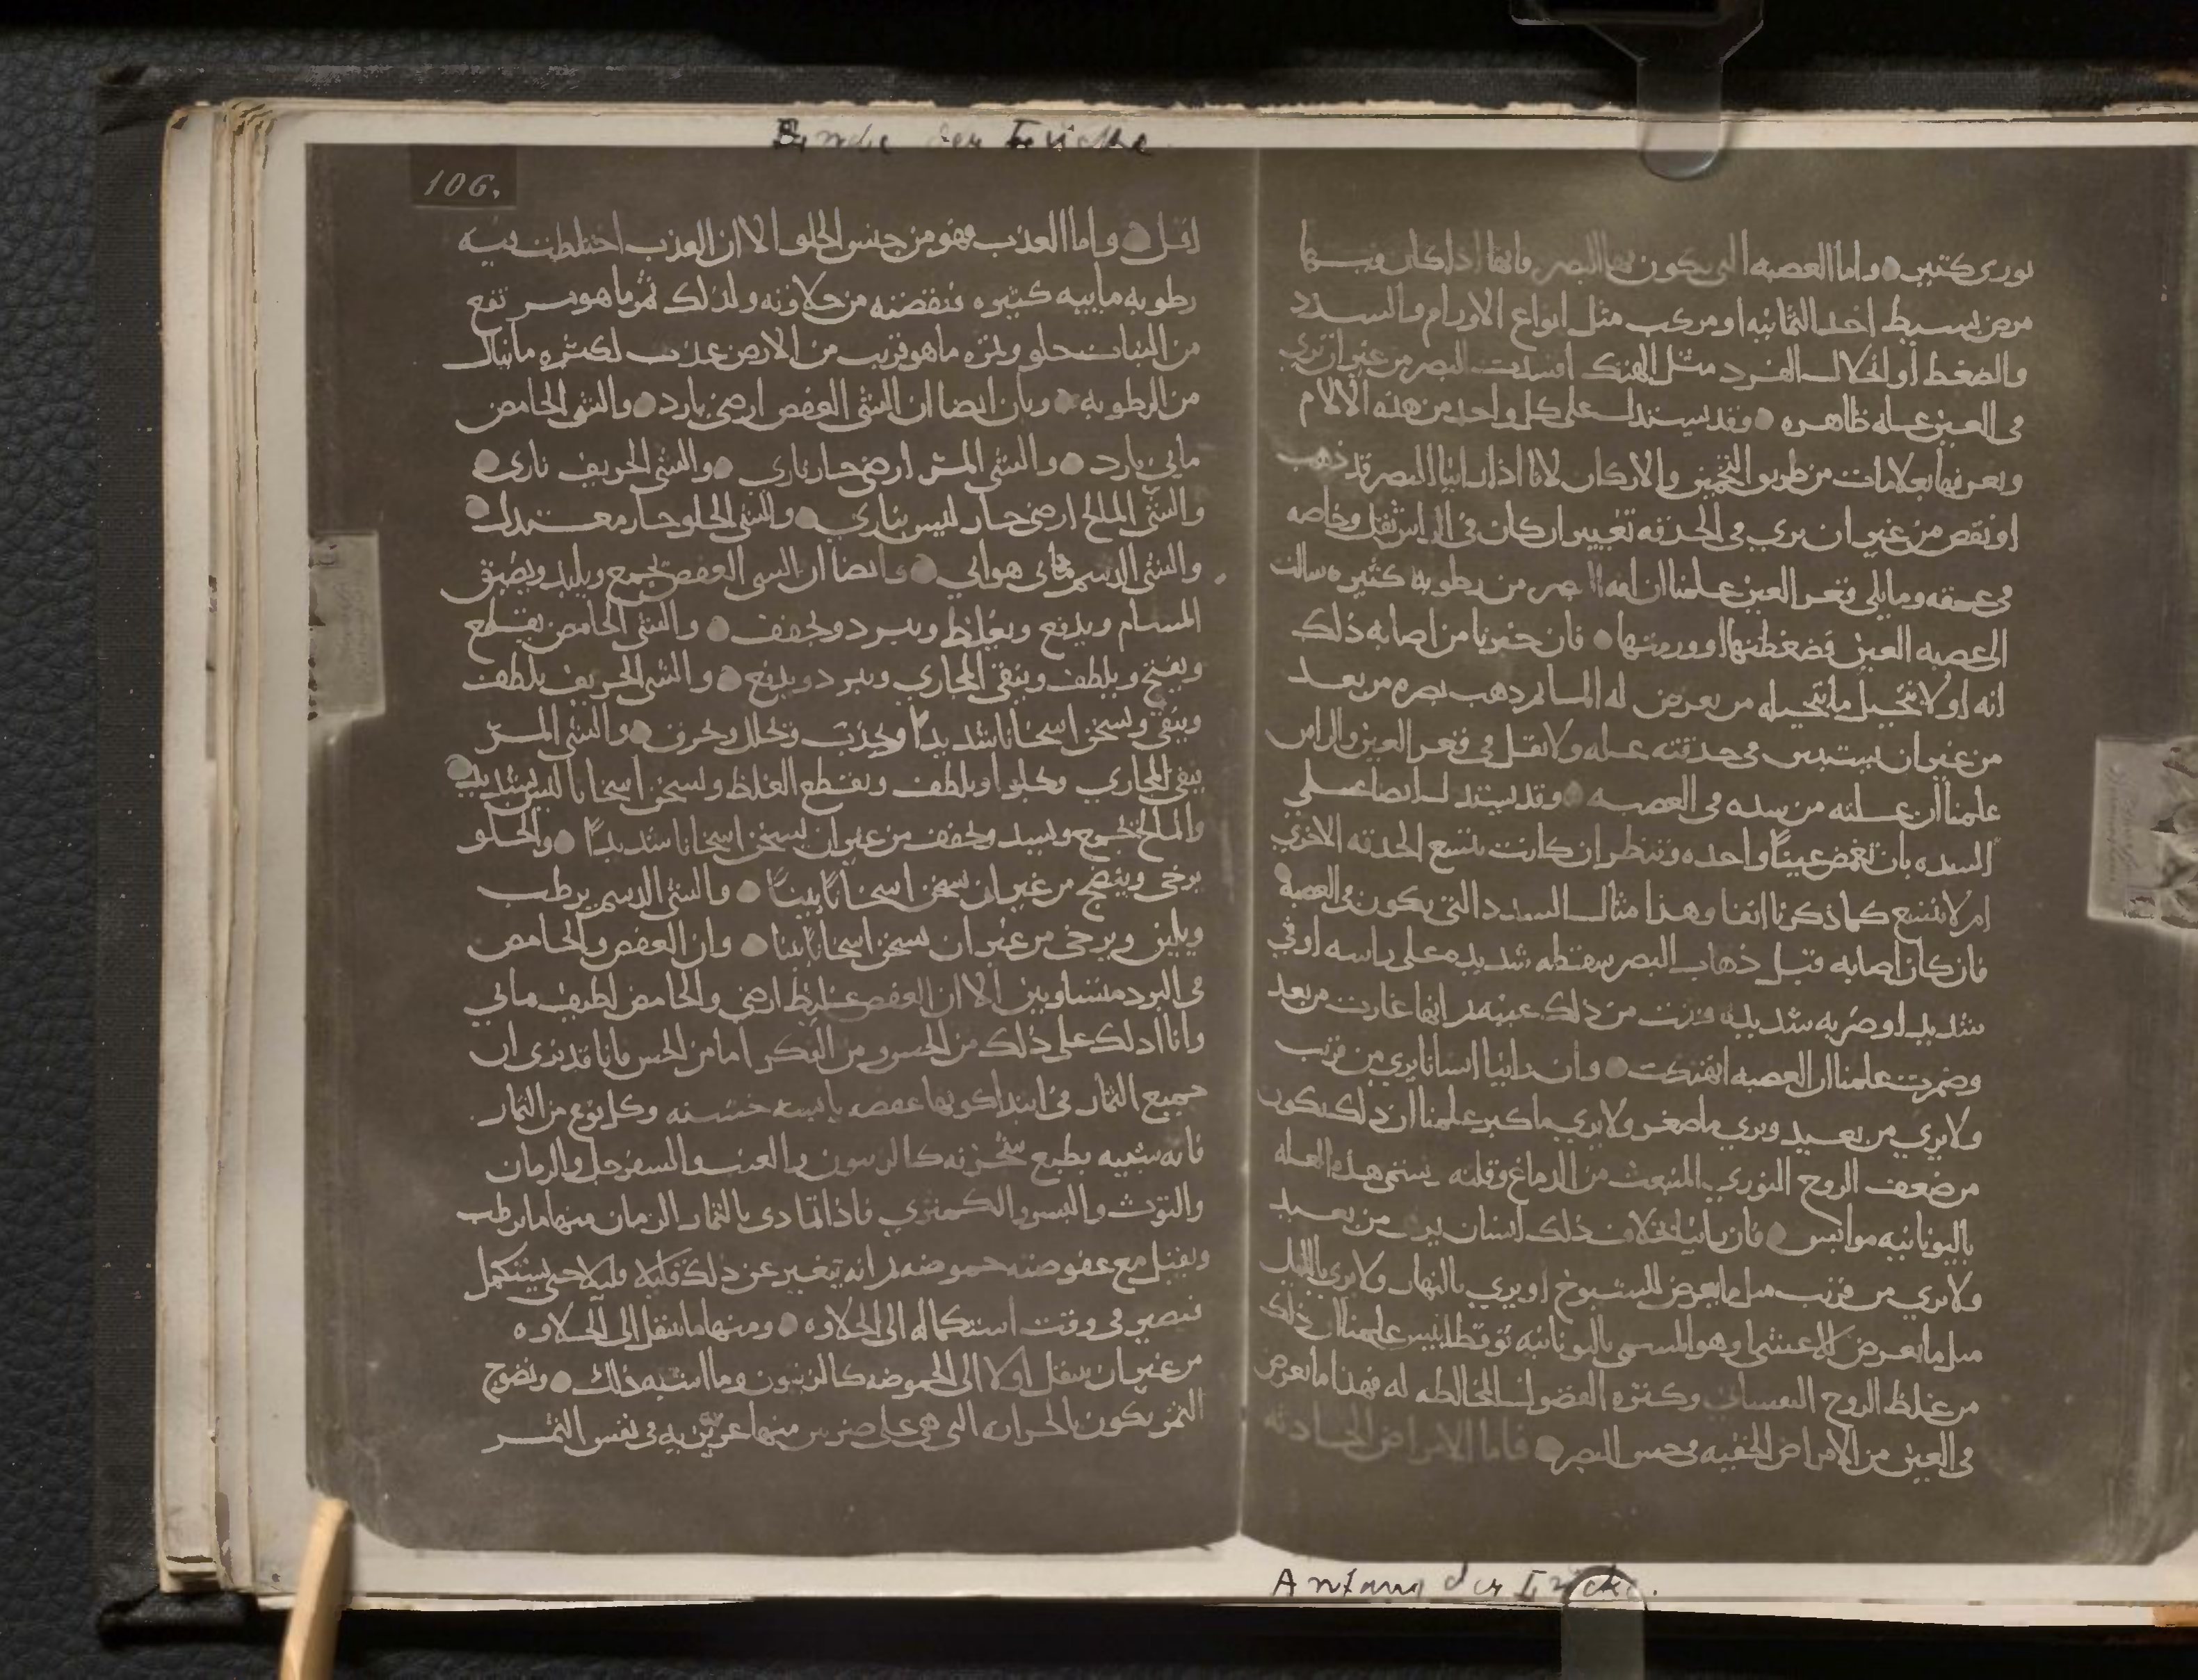 Ende der Lücke
106.
نوري كثير واما العصبه التي يكون بها البصر فانها اذا كان فيها
مرض بسيط احد الثمانيه او مركب مثل انواع الاورام والسدد
والضغط أو انحلال الفرد مثل الهتك افسدت البصر من غير ان تري
في العين عله ظاهره وقد يستدل على كل واحد من هذه الالام
وتعرفها بعلامات من طريق التخمين والاركان لانا اذا راينا البصر قد ذهب
او نقص من غير ان يري في الحدقه تغيير ان كان في الراس ثقل وخاصه
في عمقه وما يلي قعر العين علمنا ان افه البصر من رطوبه كثيره سالت
الى عصبه العين فضغطتها او ورمتها فان خبرنا من اصابه ذلك
انه اولا تخيل ما يتخيله من يعرض له الما ثم ذهب بصره من بعد
من غير ان يستبين في حدقته عله ولا ثقل في قعر العين والراس
علمنا ان علته من سده في العصبه وقد يستدل ايضا على
السده بان تغمض عينا واحده وتنظر ان كانت تتسع الحدقه الاخري
ام لا تتسع كما ذكرنا انفا وهذا مثال السدد التي يكون في العصبه
فان كان اصابه قبل ذهاب البصر سقطه شديده على راسه او قي
شديد او ضربه شديده فنتت من ذلك عينه ثم انها غارت من بعد
وضمرت علمنا ان العصبه انهتكت وان راينا انسانا يري من قريب
ولا يري من بعيد ويري ما صغر ولا يري ما كبر علمنا ان ذلك يكون
من ضعف الروح النوري المنبعث من الدماغ وقلته يسمى هذه العله
باليونانيه موابس فان راينا خلاف ذلك انسان يري من بعيد
ولا يري من قريب مثل ما يعرض للشيوخ او يري بالنهار ولا يري بالليل
مثل ما يعرض للاعشى وهو المسمى باليونانيه نوقطالبيس علمنا ان ذلك
من غلظ الروح النفساني وكثره الفضول المخالطه له فهذا ما يعرض
في العين من الامراض الخفيه في حس البصر فاما الامراض الحادثه
Anfang der Lücke.
اقل واما العذب فهو من جنس الحلو الا ان العذب اختلطت فيه
رطوبه ماييه كثيره فنقضته من حلاوته ولذلك ثمر ما هو مرتفع
من النبات حلو وثمره ما هو قريب من الارض عذب لكثره ما ينال
من الرطوبه وبان ايضا ان الشي العفص ارضي بارد والشي الحامض
مايي بارد والشي المر ارضي حار ناري والشي الحريف ناري
والشي المالح ارضي حار ليس بناري والشي الحلو حار معتدل
والشي الدسم مائي هوائي وايضا ان الشي العفص يجمع ويلبد ويضيق
المسام ويدفع ويغلظ ويبرد ويجفف والشي الحامض يقطع
ويفتح ويلطف وينقي المجاري ويبرد ويدفع والشي الحريف يلطف
وينقي ويسخن اسخانا شديدا ويجذب ويحلل ويحرق والشي المر
ينقي المجاري ويجلوا ويلطف ويقطع الغلظ ويسخن اسخانا ليس بشديد
والمالح يجمع ويشد ويجفف من غير ان يسخن اسخانا شديدا والحلو
يرخي وينضج من غير ان يسخن اسخانا بينا والشي الدسم يرطب
ويلين ويرخي من غير ان يسخن اسخانا بينا وان العفص والحامض
في البرد متساويين الا ان العفص غليظ ارضي والحامض لطيف مائي
وانا ادلك على ذلك من الحس ومن الفكر اما من الحس فانا قد نري ان
جميع الثمار في ابتدا كونها عفصه يابسه خشنه وكل نوع من الثمار
فانه شبيه بطبع شجرته كالزيتون والعنب والسفرجل والرمان
والتوث والبسر والكمثري فاذا تمادى بالثمار الزمان منها ما يرطب
ويقبل مع عفوصته حموضه ثم انه يتغير عن ذلك قليلا قليلا حتى يستكمل
فيصير في وقت استكماله الى الحلاوه ومنها ما ينتقل الى الحلاوه
من غير ان ينتقل اولا الى الحموضه كالزيتون وما اشبه ذلك ونضوج
الثمر يكون بالحراره التي هي على ضربين منها غريزيه في نفس الثمر